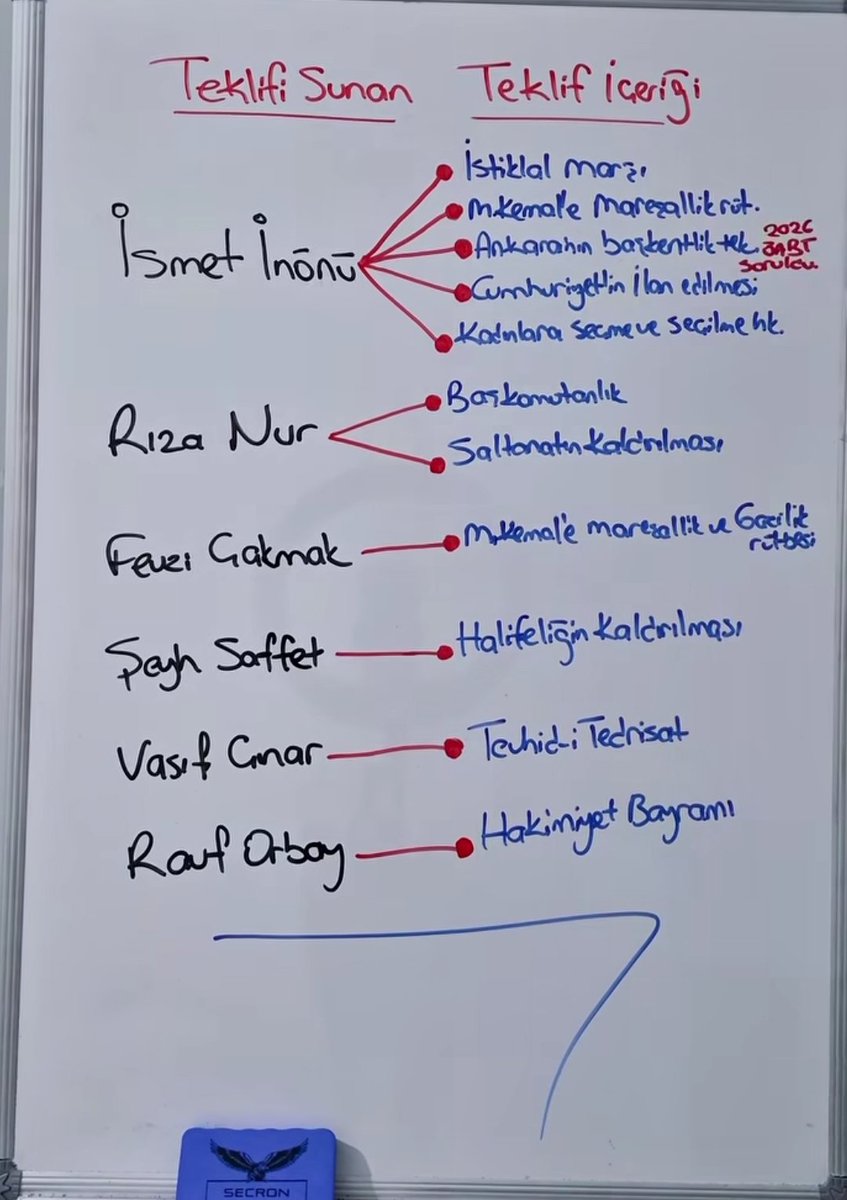 Teklifi Sunan Teklif İçeriği
İsmet İnönü
İstiklal marşı
M.Kemal'e mareşallik rüt.
Ankaranın başkentlik tek. 2026 BABT sorulcu
Cumhuriyet'in ilan edilmesi
Kadınlara seçme ve seçilme hk.
Rıza Nur
Başkomutanlık
Saltanatın kaldırılması
Fevzi Çakmak M.Kemal'e mareşallik ve Gazilik rütbesi
Şeyh Saffet Halifeliğin kaldırılması
Vasıf Çınar Tevhid-i Tedrisat
Rauf Orbay Hakimiyet Bayramı
SECRON